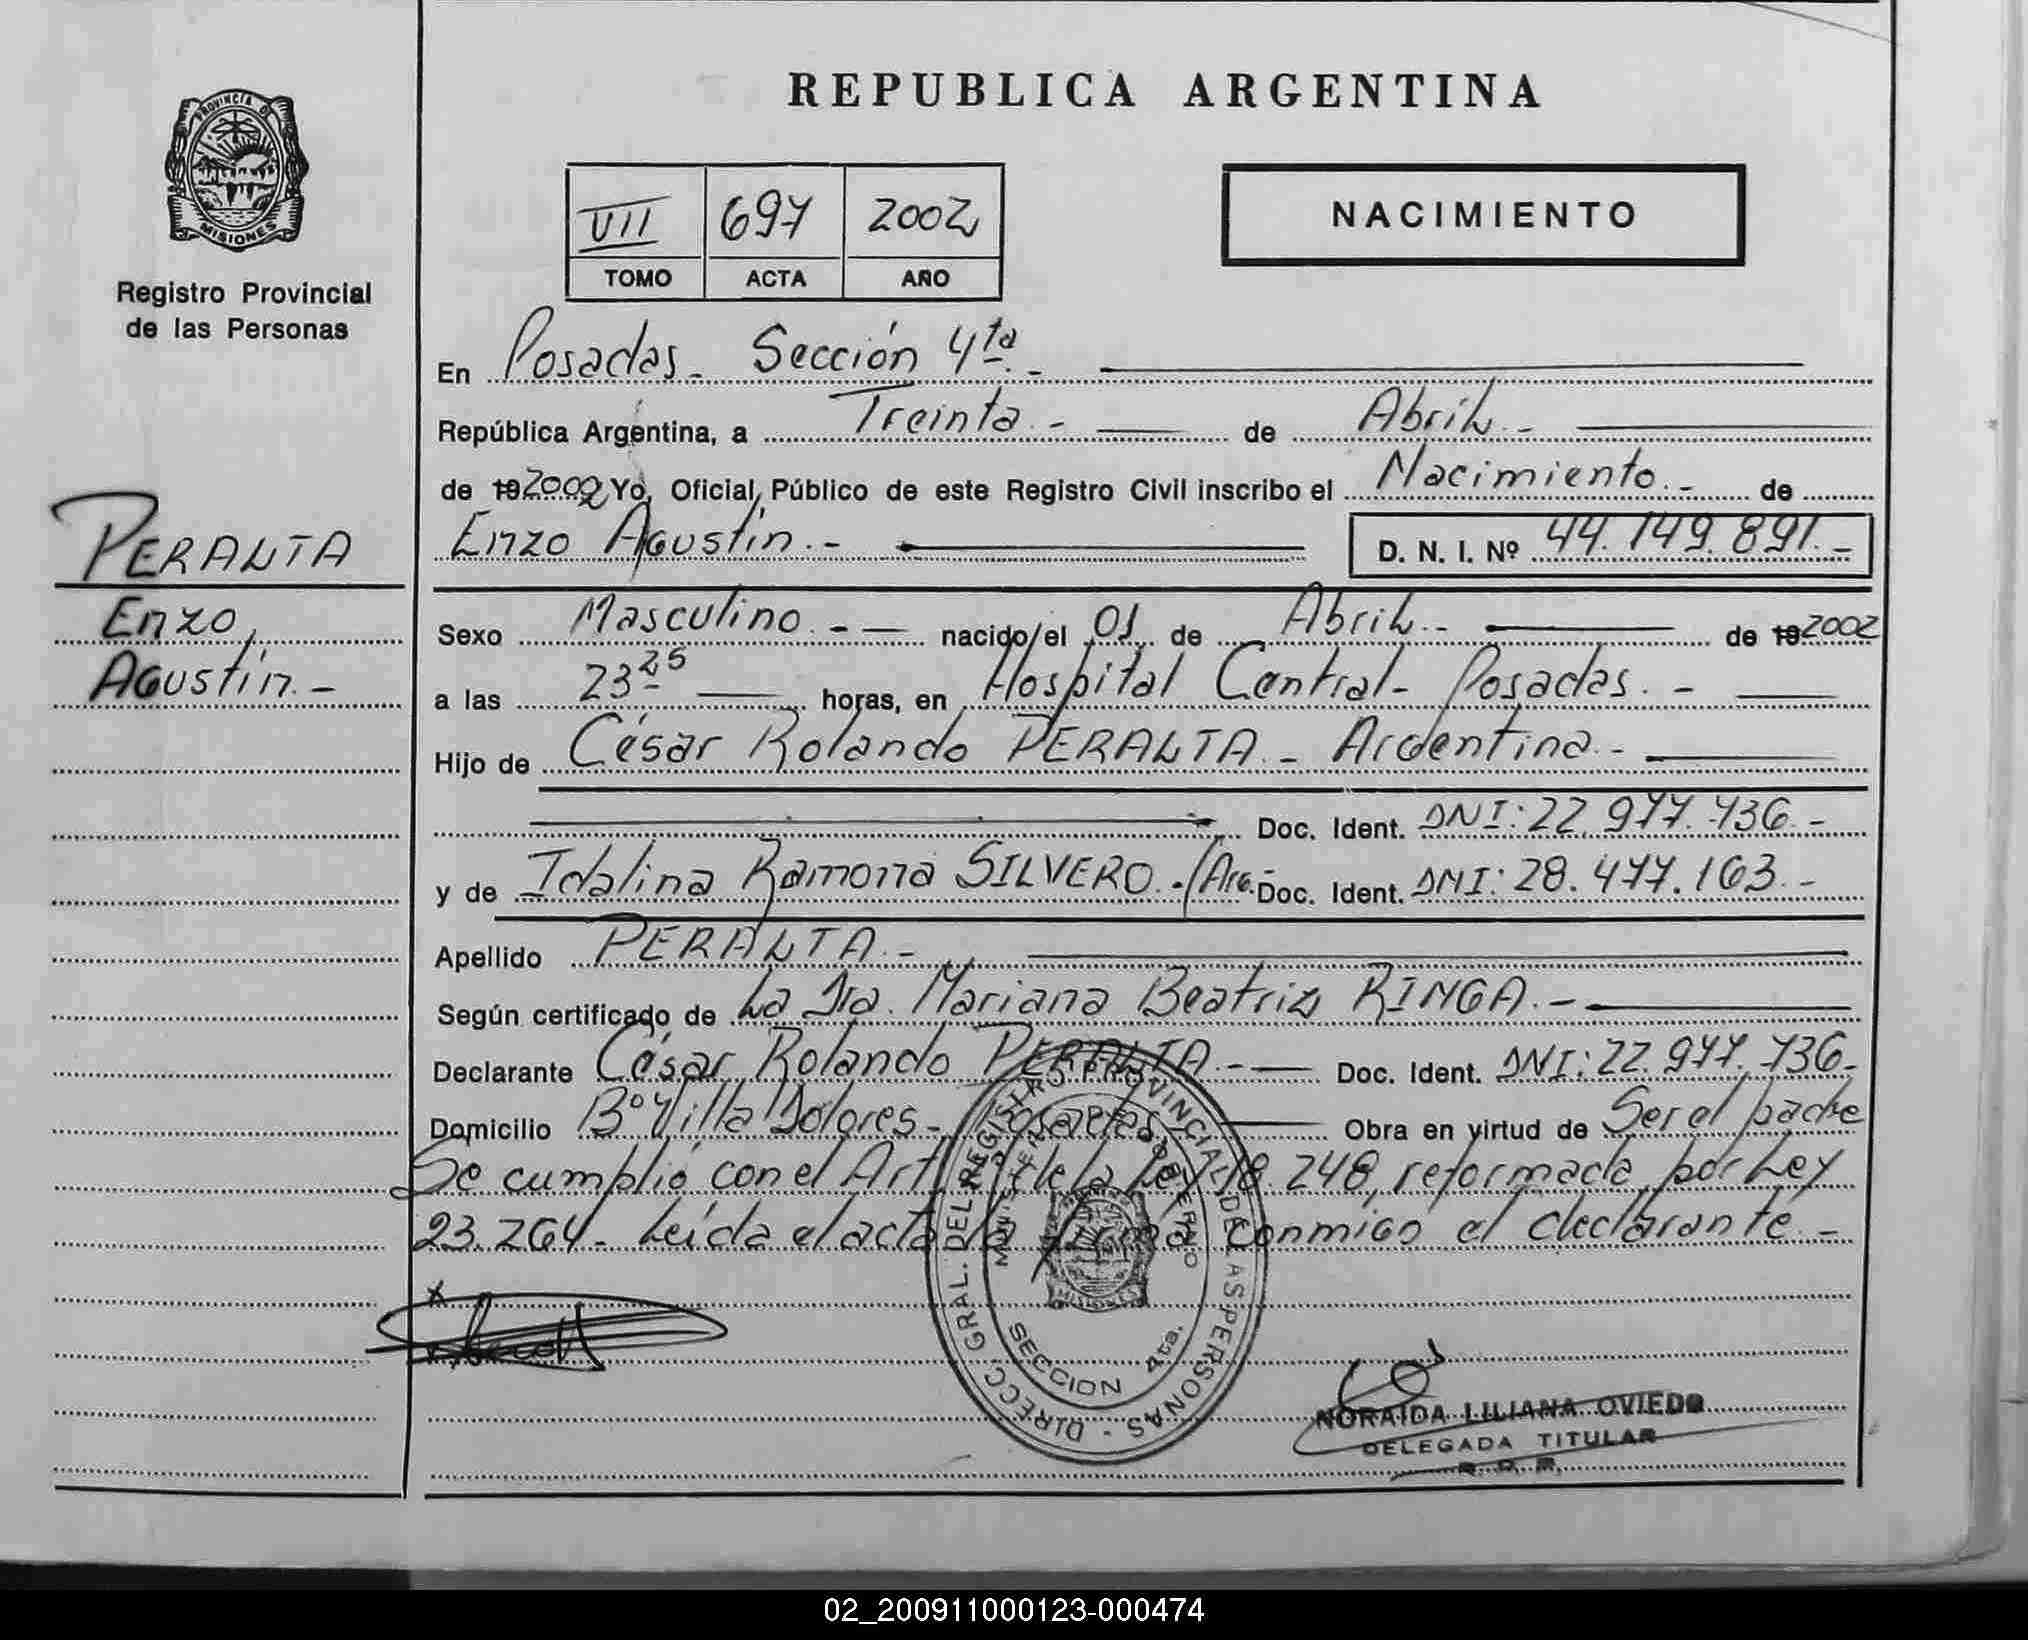 PROVINCIA DE
MISIONES
Registro Provincial
de las Personas
PERALTA
Enzo
Agustín.-
REPUBLICA ARGENTINA
VII 697 2002
TOMO ACTA AÑO
NACIMIENTO
En Posadas - Sección 4ta.-
República Argentina, a Treinta.- de Abril.-
de 19 2002 Yo, Oficial Público de este Registro Civil inscribo el Nacimiento.- de
Enzo Agustín.- D. N. I. Nº 44.149.891.-
Sexo Masculino.- nacido el 01 de Abril.- de 19 2002
a las 23 25 horas, en Hospital Central - Posadas.-
Hijo de César Rolando PERALTA - Argentina.-
Doc. Ident. DNI: 22.977.736.-
y de Idalina Ramona SILVERO.-/Arg.- Doc. Ident. DNI: 28.477.163.-
Apellido PERALTA.-
Según certificado de La Dra. Mariana Beatriz RINGA.-
Declarante César Rolando PERALTA.- Doc. Ident. DNI: 22.977.736.-
Domicilio Bº Villa Dolores - Posadas Obra en virtud de Ser el padre
Se cumplió con el Art. de la Ley 18.248, reformada por Ley
23.264 - Leída el acta la firma conmigo el declarante.-
DIRECC. GRAL. DEL REGISTRO PROVINCIAL DE LAS PERSONAS
MINISTERIO GOBIERNO
MISIONES
SECCION 4ta.
NORAIDA LILIANA OVIEDO
DELEGADA TITULAR
R. P. P.
02_200911000123-000474